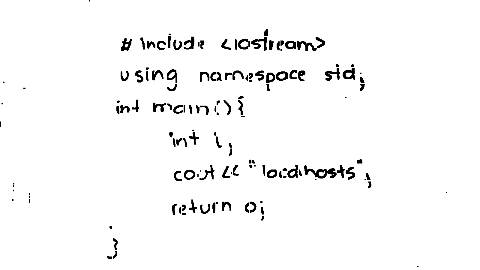 # include <iostream>
using namespace std;
int main(){
int i;
cout << "localhosts";
return 0;
}